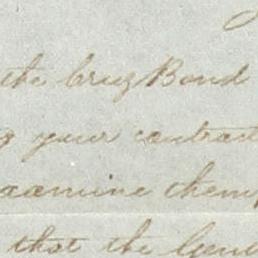 the Cruz Bond
g your contract
xamine them
that the Gen